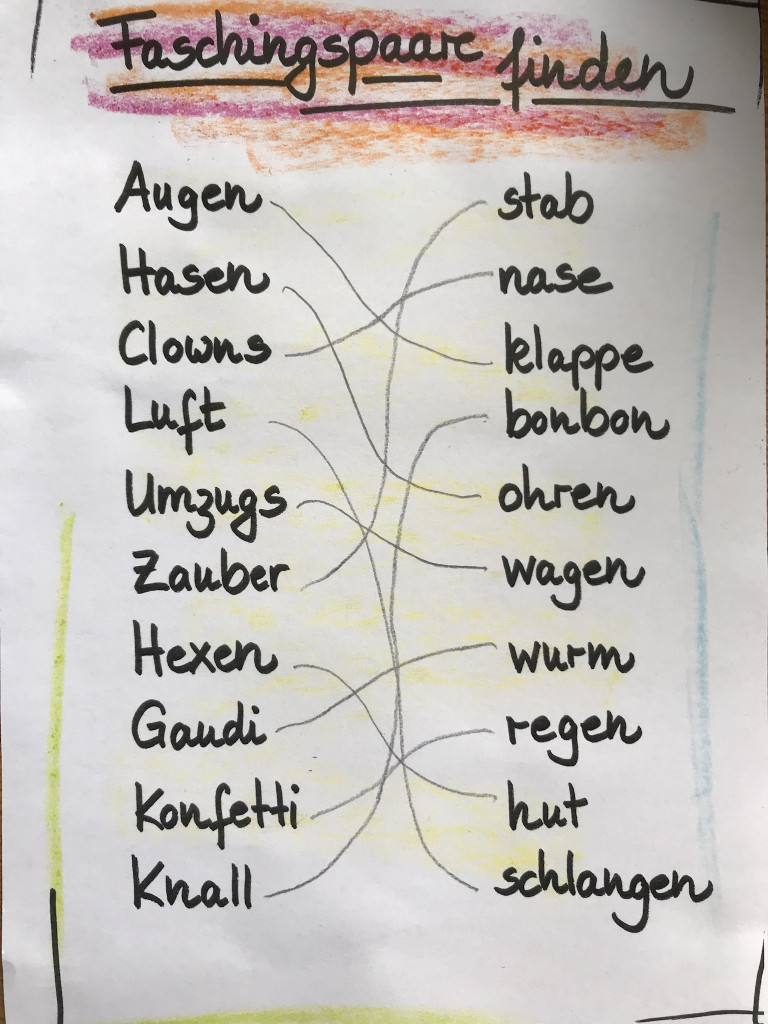 Faschingspaare finden
Augen stab
Hasen nase
Clowns klappe
Luft bonbon
Umzugs ohren
Zauber wagen
Hexen wurm
Gaudi regen
Konfetti hut
Knall schlangen